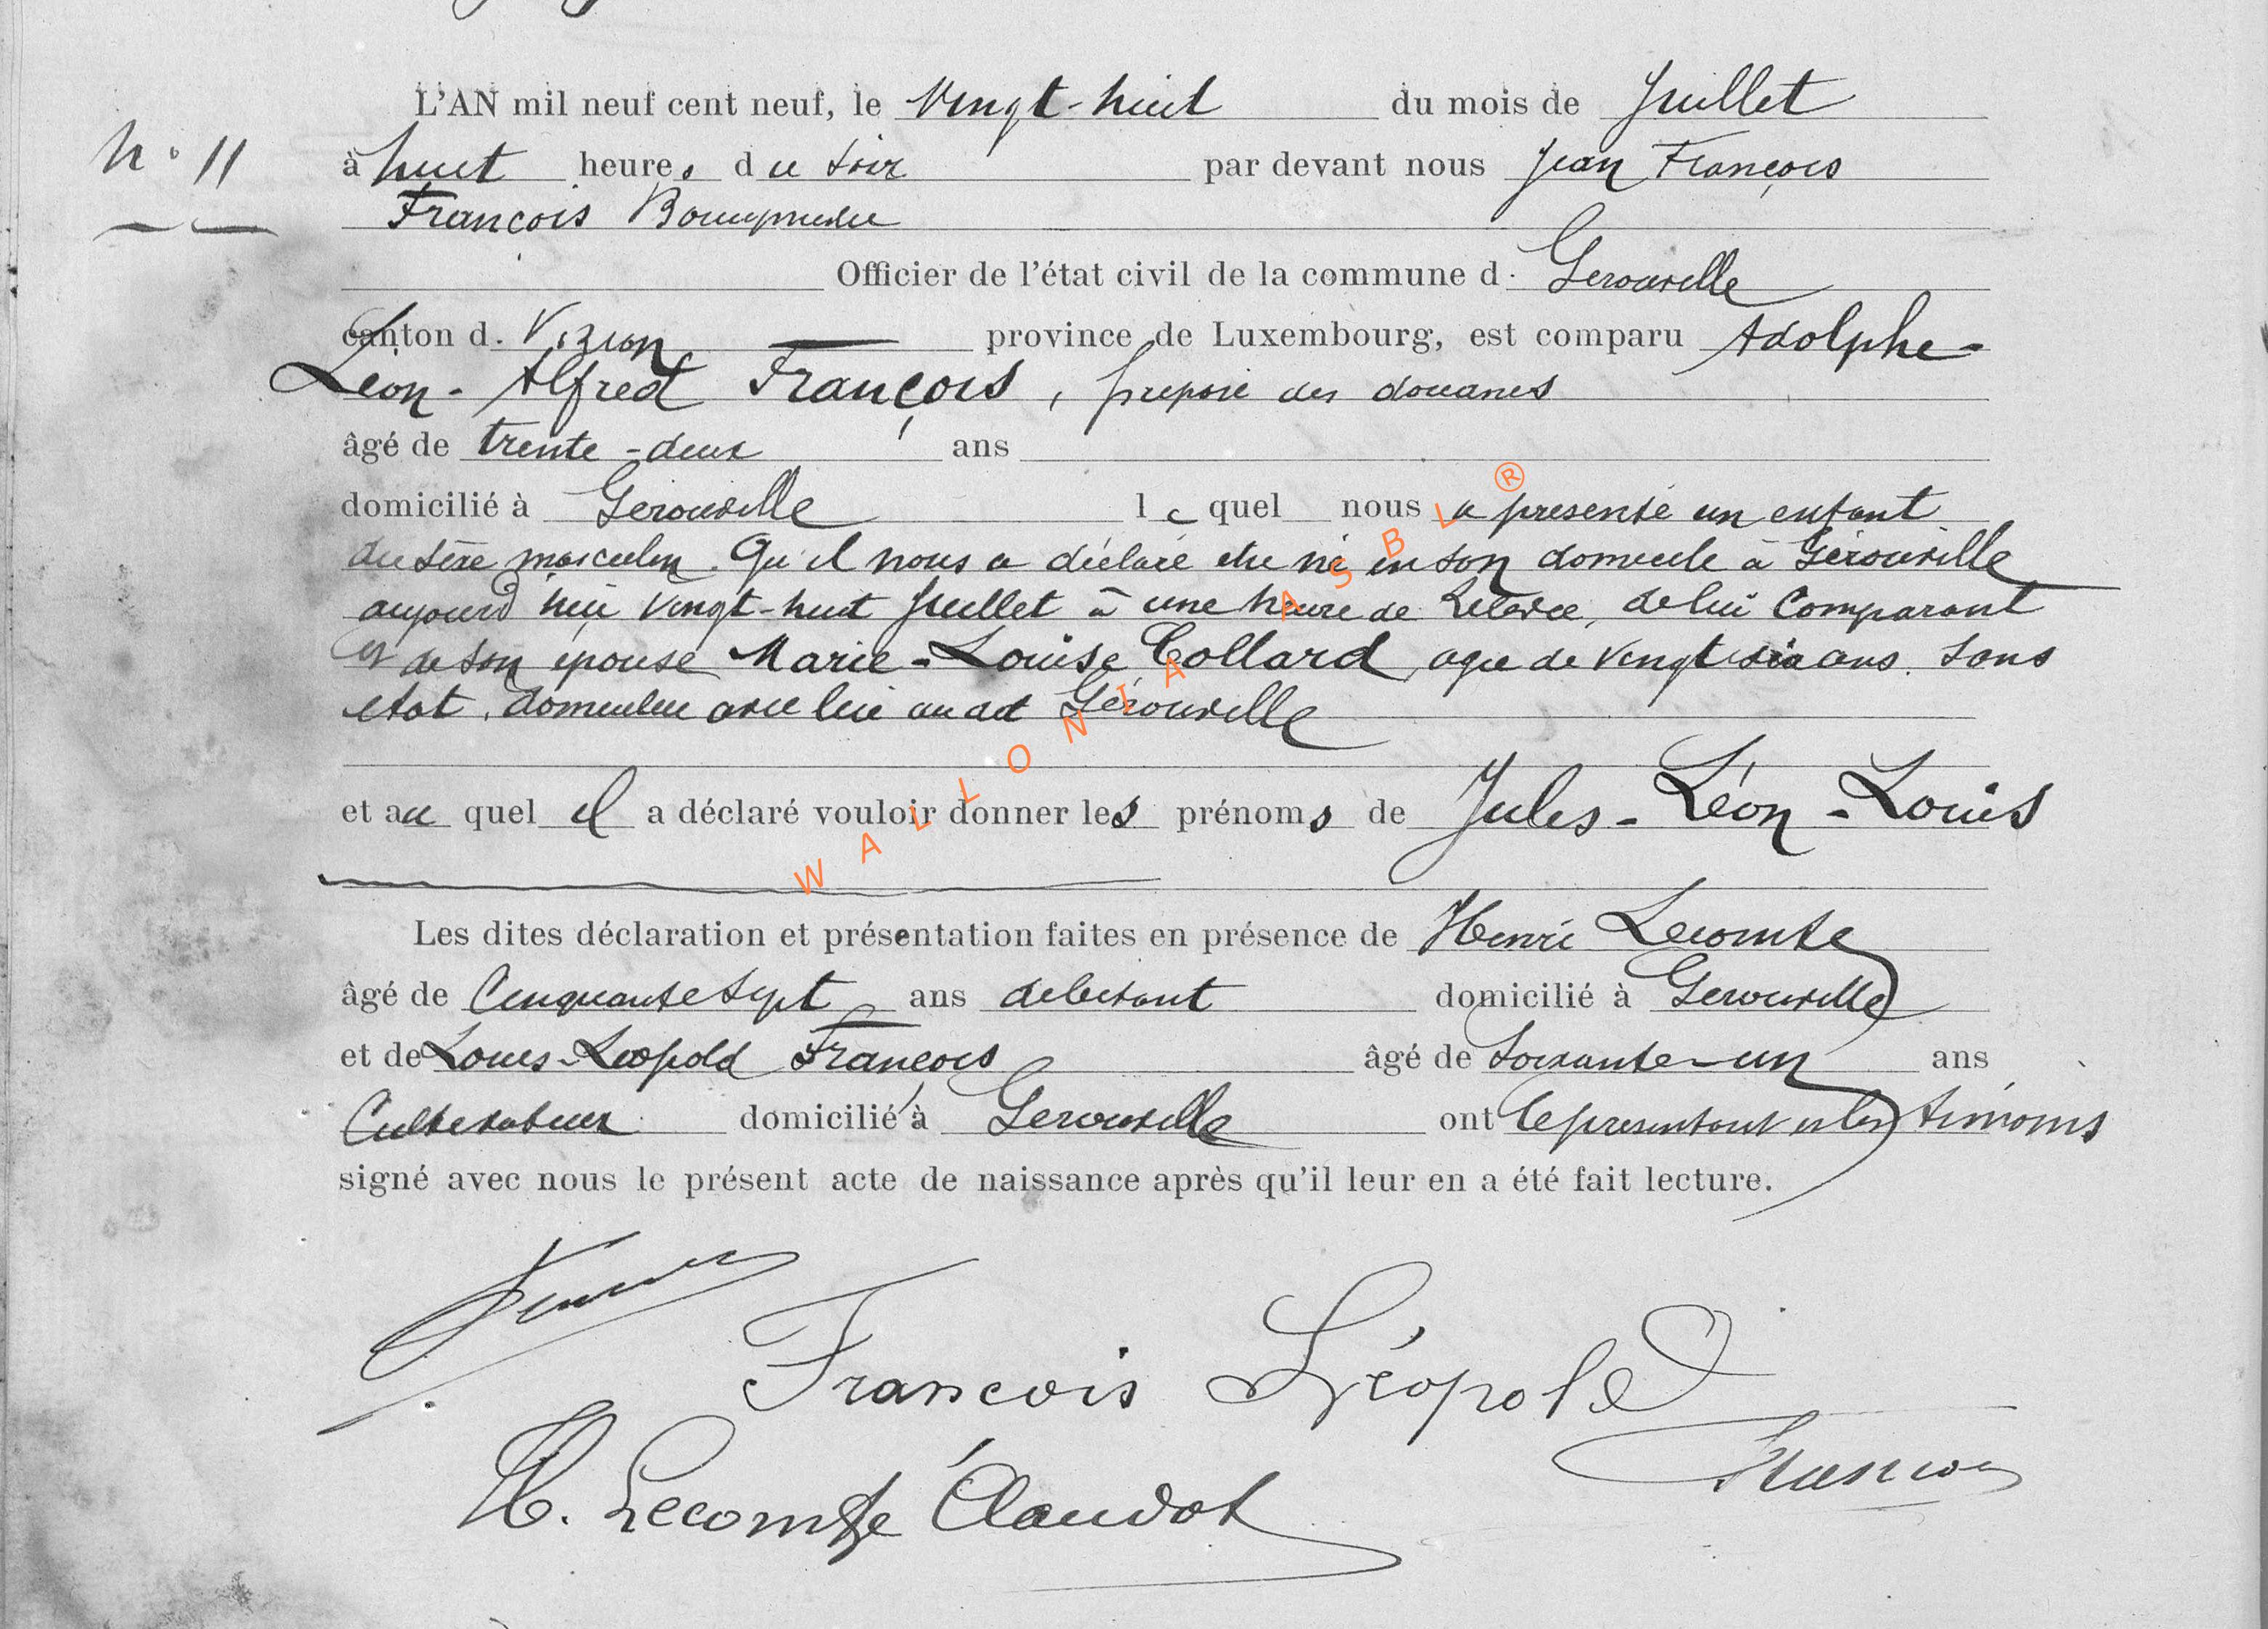 L'AN mil neuf cent neuf, le Vingt-huit du mois de Juillet
N° 11
à huit heures du soir par devant nous Jean François
François
Officier de l'état civil de la commune d. Gerouville
canton d. Virton province de Luxembourg, est comparu Adolphe-
Léon-Alfred François, préposé des douanes
âgé de trente-deux ans
domicilié à Gérouville lequel nous a présenté un enfant
du sexe masculin. Qu'il nous a déclaré être né en son domicile à Gérouville
aujourd'hui vingt-huit Juillet à une heure de relevée, de lui Comparant
et de son épouse Marie-Louise Collard agée de vingt six ans. Sans
état, domiciliée avec lui au dit Gérouville
et au quel il a déclaré vouloir donner les prénoms de Jules-Léon-Louis
Les dites déclaration et présentation faites en présence de Henri Lecomte
âgé de Cinquante sept ans debitant domicilié à Gerouville
et de Louis-Léopold François âgé de Soixante-un ans
Cultivateur domicilié à Gerouville ont le présentant et les témoins
signé avec nous le présent acte de naissance après qu'il leur en a été fait lecture.
François Léopold
H. Lecomte Claudot
WALLONIA ASBL ®